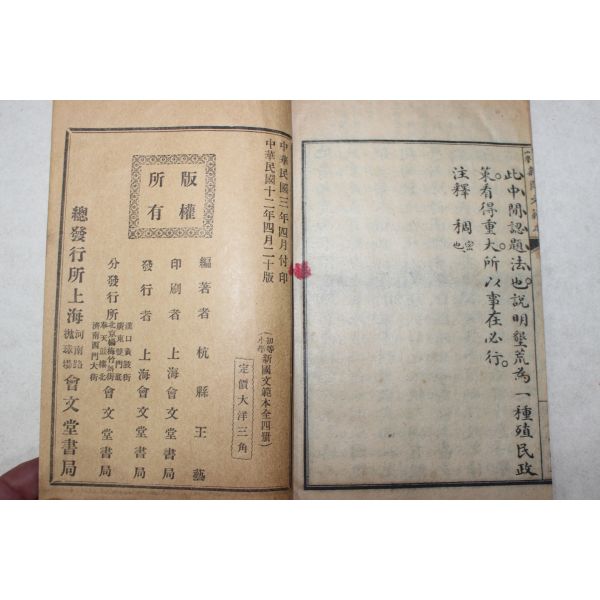 此中間認題法也說明墾荒為一種殖民政
策看得重大所以事在必行。
注釋　稠密也
中華民國三年四月付印
中華民國十二年四月二十版
初等小學新國文範本全四冊
定價大洋三角
版權所有
編著者　杭縣王藝
印刷者　上海會文堂書局
發行者　上海會文堂書局
分發行所　漢口黃陂街　廣東雙門底　北京楊梅竹斜街　奉天鼓樓北　濟南西門大街　會文堂書局
總發行所上海河南路拋球場會文堂書局